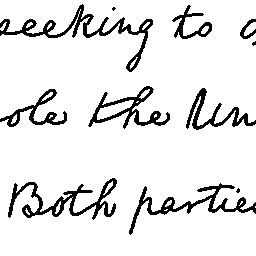 seeking to
ole the Un
Both parties